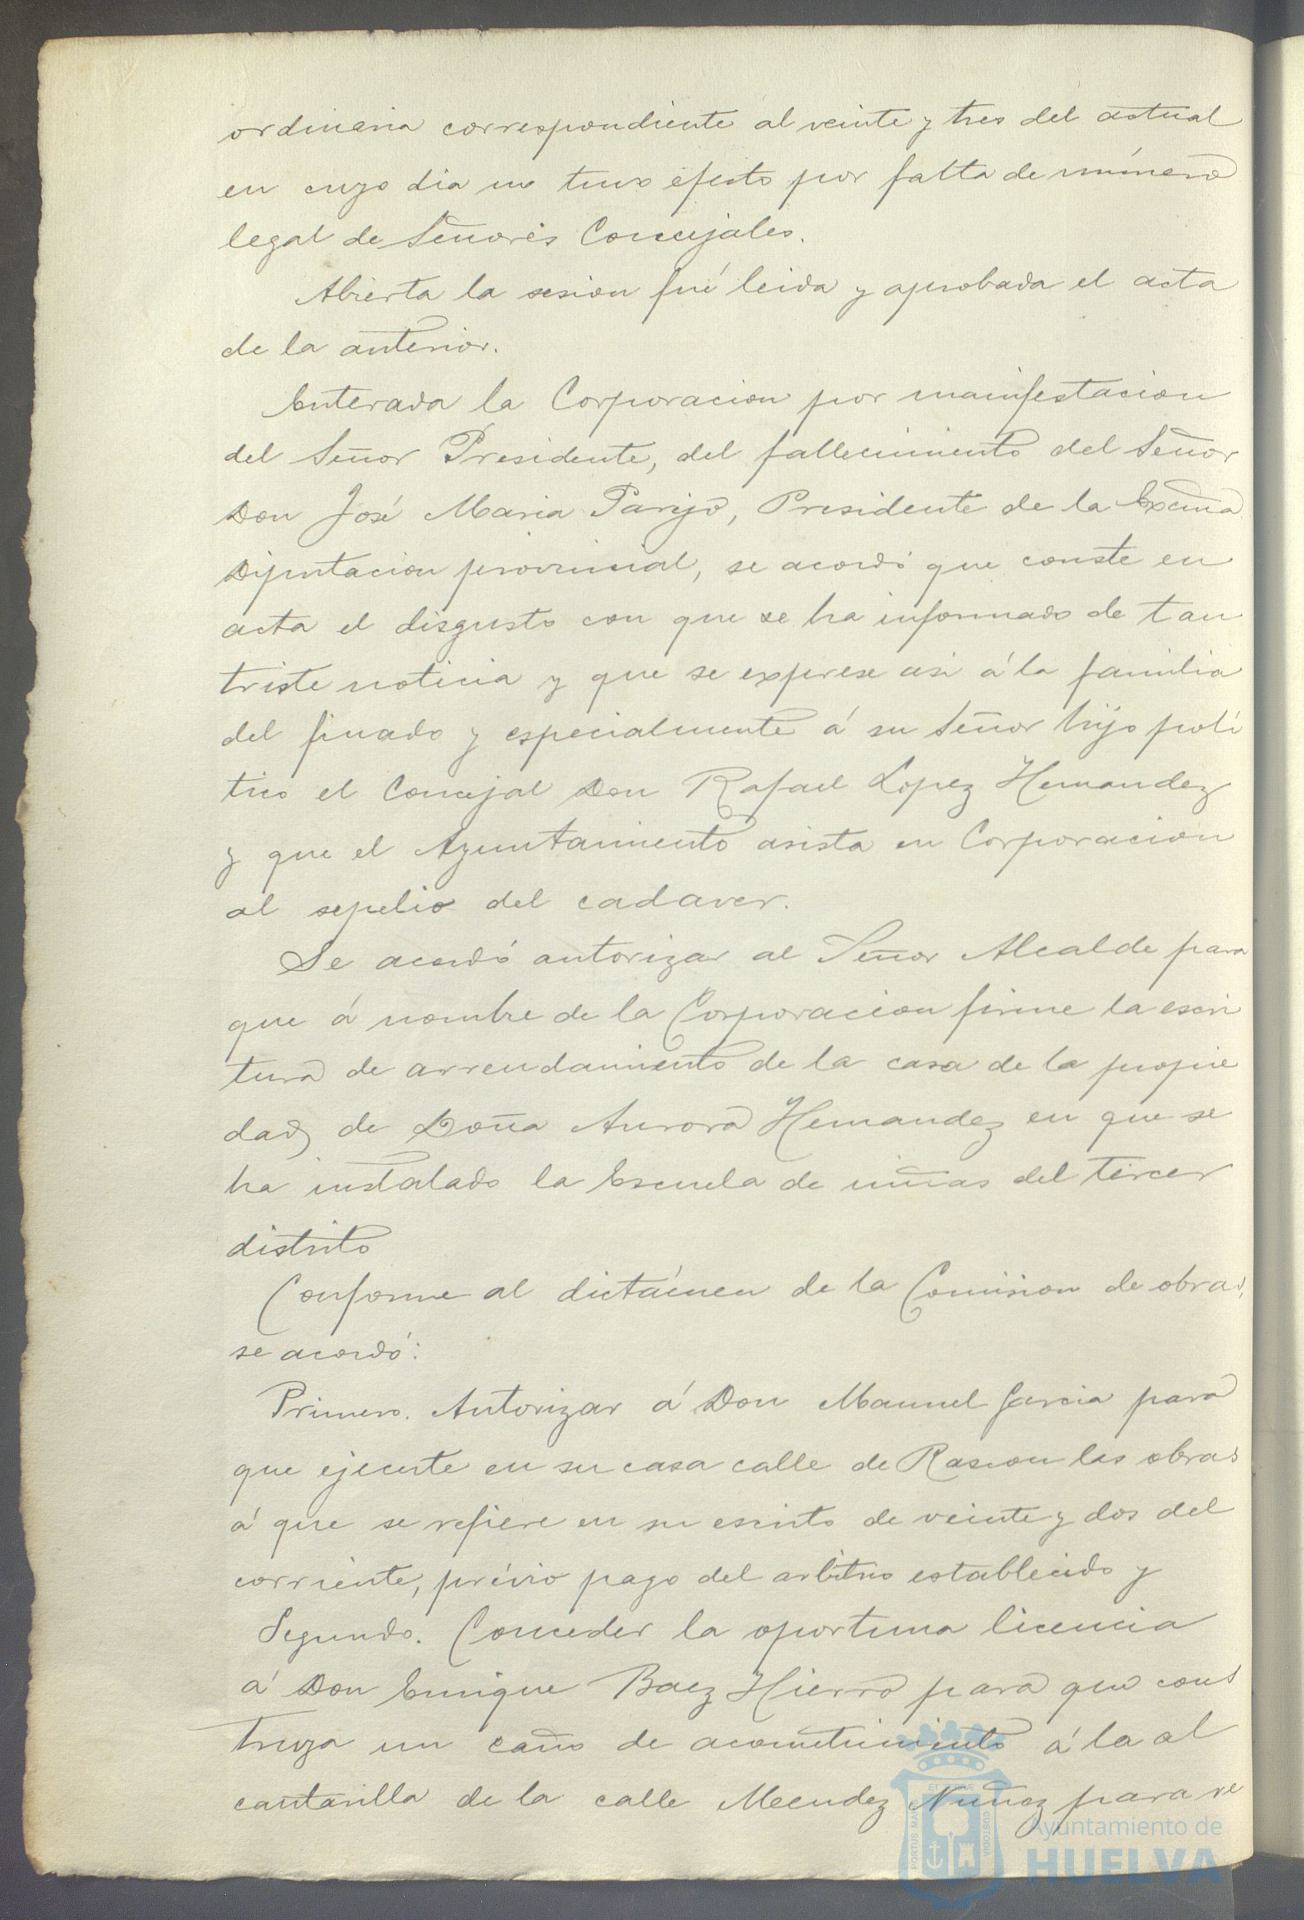 ordinaria correspondiente al veinte y tres del actual
en cuyo dia no tuvo efecto por falta de número
legal de Señores Concejales.
Abierta la sesion fué leida y aprobada el acta
de la anterior.
Enterada la Corporacion por manifestacion
del Señor Presidente, del fallecimiento del Señor
Don José Maria Parejo, Presidente de la Excma
Diputacion provincial, se acordó que conste en
acta el disgusto con que se ha informado de tan
triste noticia y que se exprese asi á la familia
del finado y especialmente á su Señor hijo poli
tico el Concejal Don Rafael Lopez Hernandez
y que el Ayuntamiento asista en Corporacion
al sepelio del cadaver.
Se acordó autorizar al Señor Alcalde para
que á nombre de la Corporacion firme la escri
tura de arrendamiento de la casa de la propie
dad de Doña Aurora Hernandez en que se
ha instalado la Escuela de niñas del tercer
distrito
Conforme al dictámen de la Comision de obras,
se acordó:
Primero. Autorizar á Don Manuel Garcia para
que ejecute en su casa calle de Rascon las obras
á que se refiere en su escrito de veinte y dos del
corriente, prévio pago del arbitrio establecido y
Segundo. Conceder la oportuna licencia
á Don Enrique Baez Hierro para que cons
truya un caño de acometimiento á la al
cantarilla de la calle Mendez Nuñez para re
PORTUS MARIS ET TERRÆ CUSTODIA
Ayuntamiento de
HUELVA